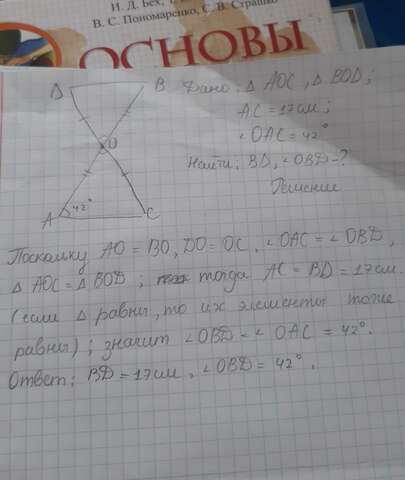 И. Д. Бех, Т.
В. С. Пономаренко, С. В. Страшко
ОСНОВЫ
D B
O
A 42° C
Дано: △ AOC, △ BOD;
AC = 17 см;
∠OAC = 42°
Найти: BD, ∠OBD - ?
Решение
Поскольку AO = BO, DO = OC, ∠OAC = ∠OBD,
△ AOC = △ BOD; тогда AC = BD = 17 см.
(если △ равны, то их элементы тоже
равны); значит ∠OBD = ∠OAC = 42°.
Ответ: BD = 17 см, ∠OBD = 42°.